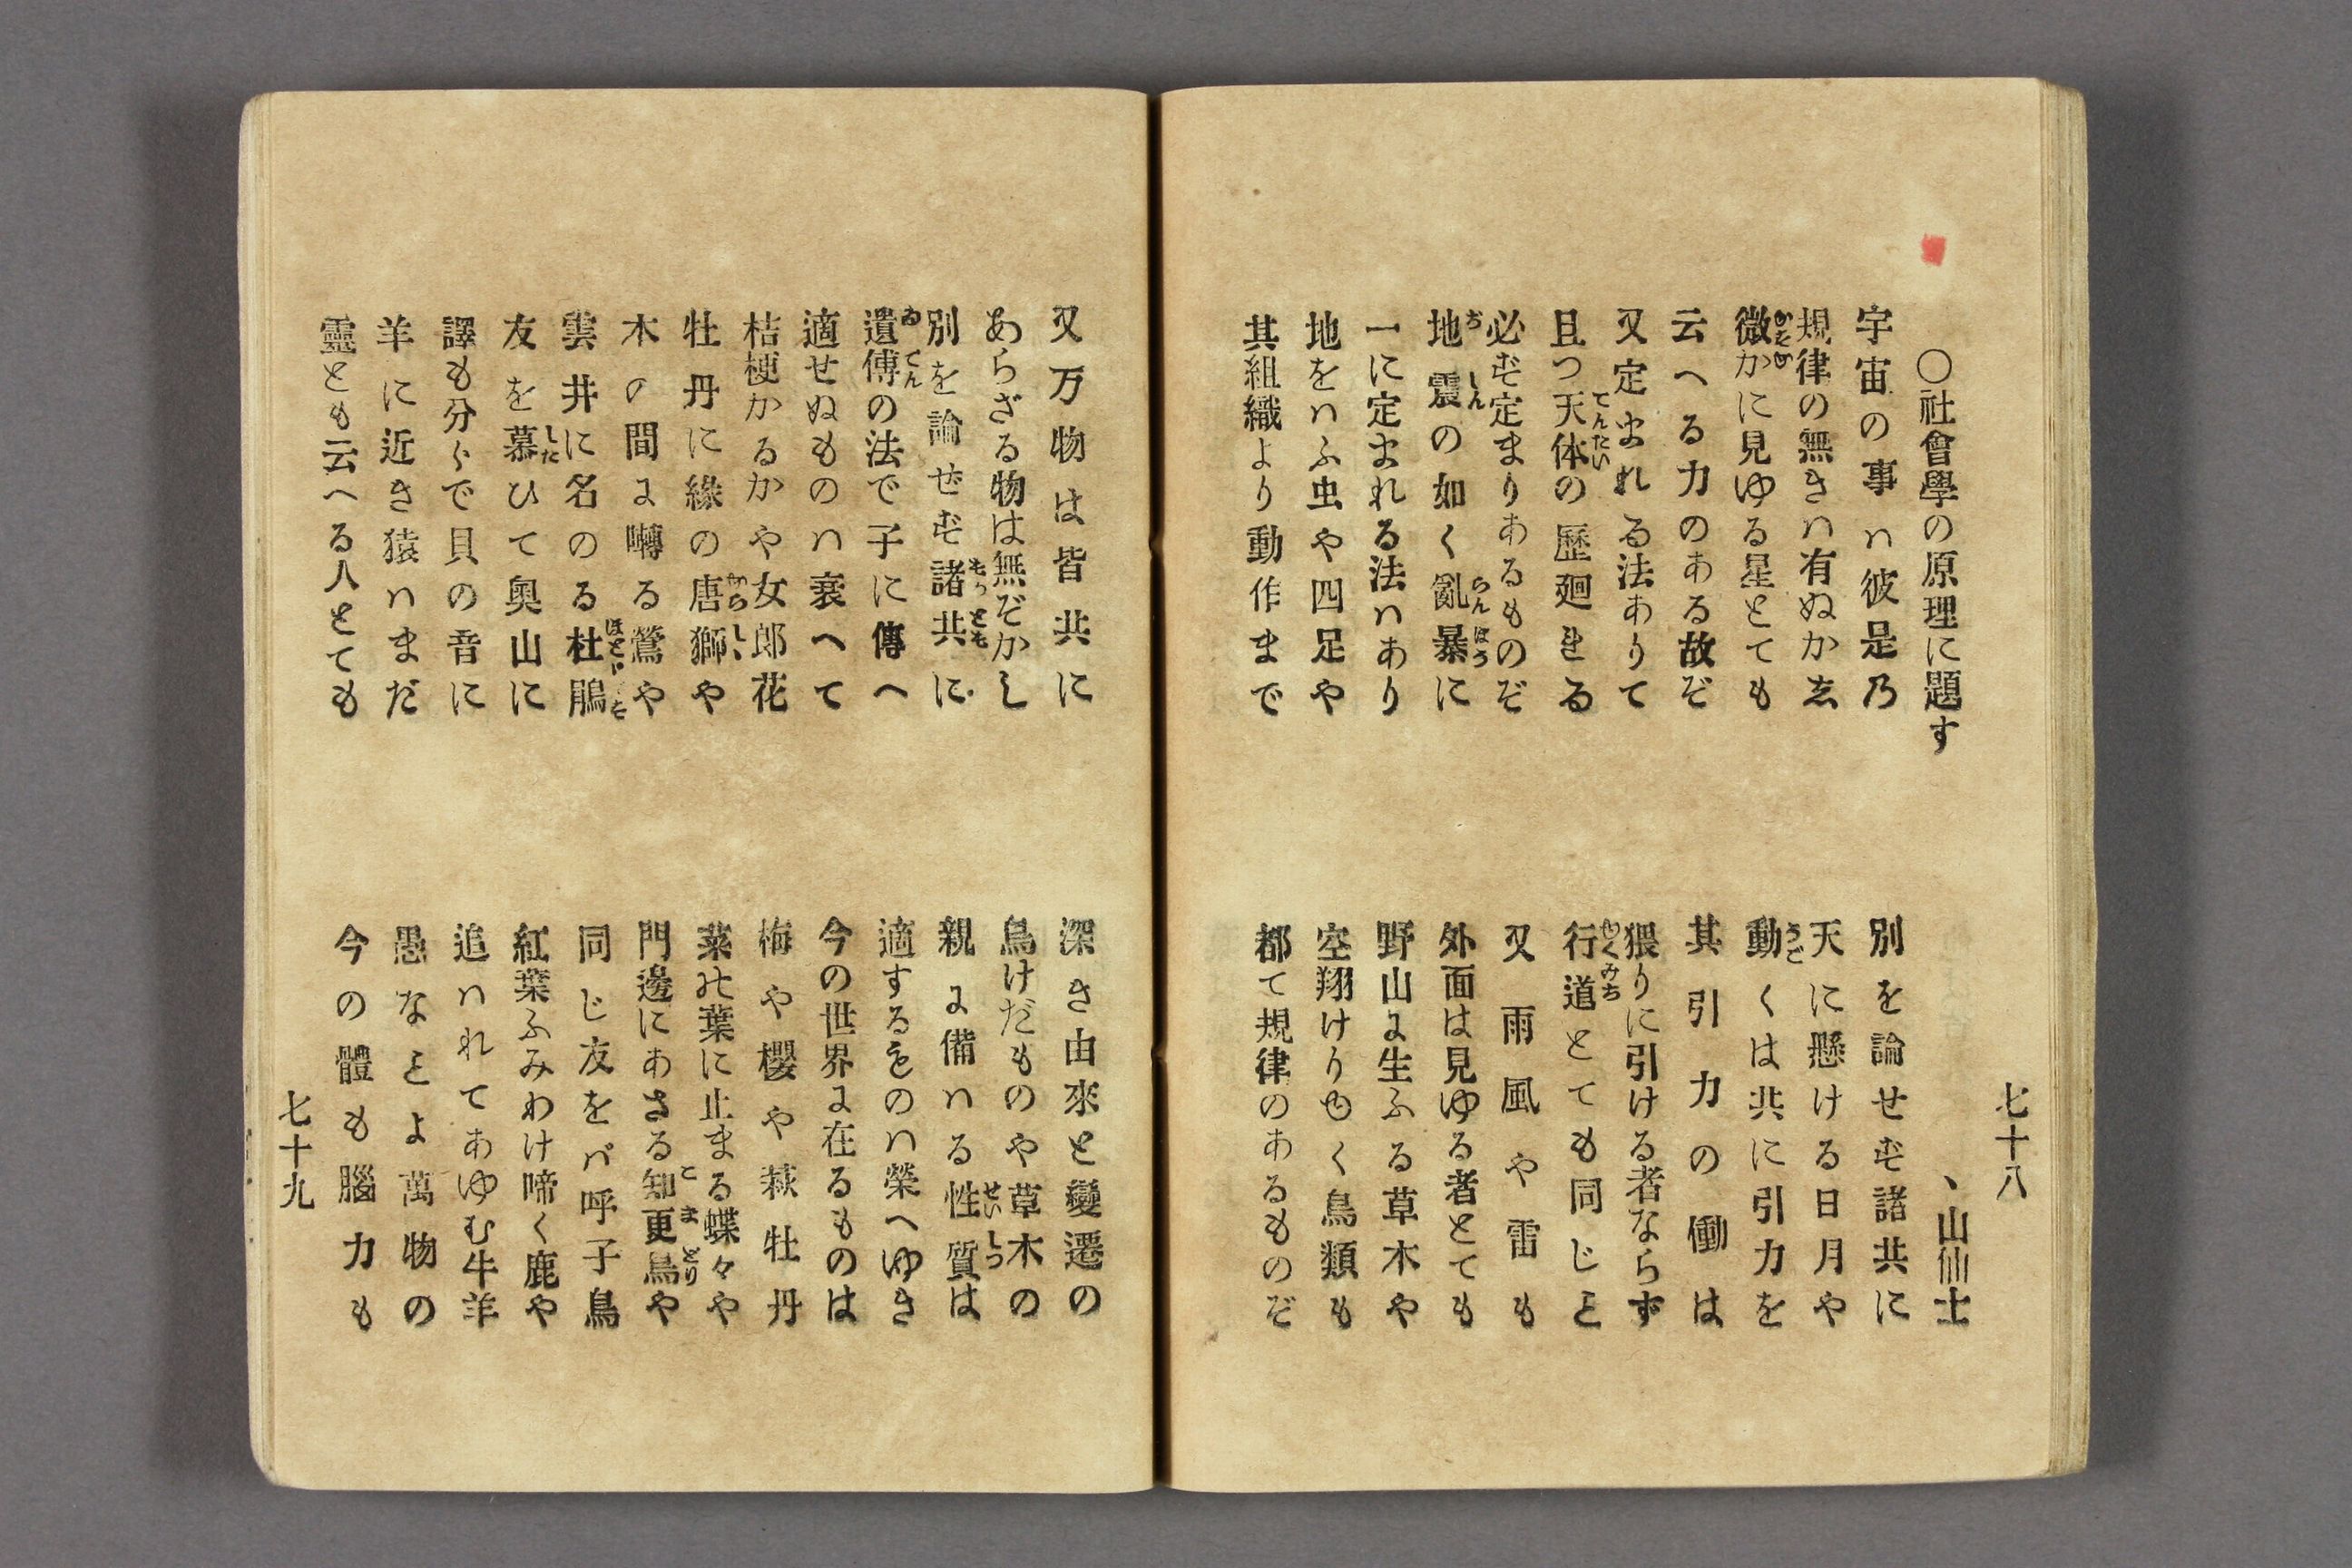 七十八
〇社會學の原理に題す
ヽ山仙士
宇宙の事ハ彼是乃
別を論せず諸共に
規律の無きハ有ぬかし
天に懸ける日月や
微かに見ゆる星とても
動くは共に引力を
云へる力のある故ぞ
其引力の働は
又定まれる法ありて
猥りに引ける者ならず
且つ天体の歴廻れる
行道とても同じこと
必ず定まりあるものぞ
又雨風や雷も
地震の如く亂暴に
外面は見ゆる者とても
一に定まれる法ハあり
野山に生ふる草木や
地をハふ虫や四足や
空翔けりゆく鳥類も
其組織より動作まで
都て規律のあるものぞ
又万物は皆共に
深き由來と變遷の
あらざる物は無ぞかし
鳥けだものや草木の
別を論ぜず諸共に
親に備ハる性質は
遺傳の法で子に傳へ
適するものハ榮へゆき
適せぬものハ衰へて
今の世界に在るものは
桔梗かるかや女郎花
梅や櫻や萩牡丹
牡丹に緣の唐獅や
菜の葉に止まる蝶々や
木の間に囀る鶯や
門邊にあさる知更鳥や
雲井に名のる杜鵑
同じ友をバ呼子鳥
友を慕ひて奥山に
紅葉ふみわけ啼く鹿や
譯も分らで貝の音に
追ハれてあゆむ牛羊
羊に近き猿ハまだ
愚なことよ萬物の
靈とも云へる人とても
今の體も腦力も
七十九